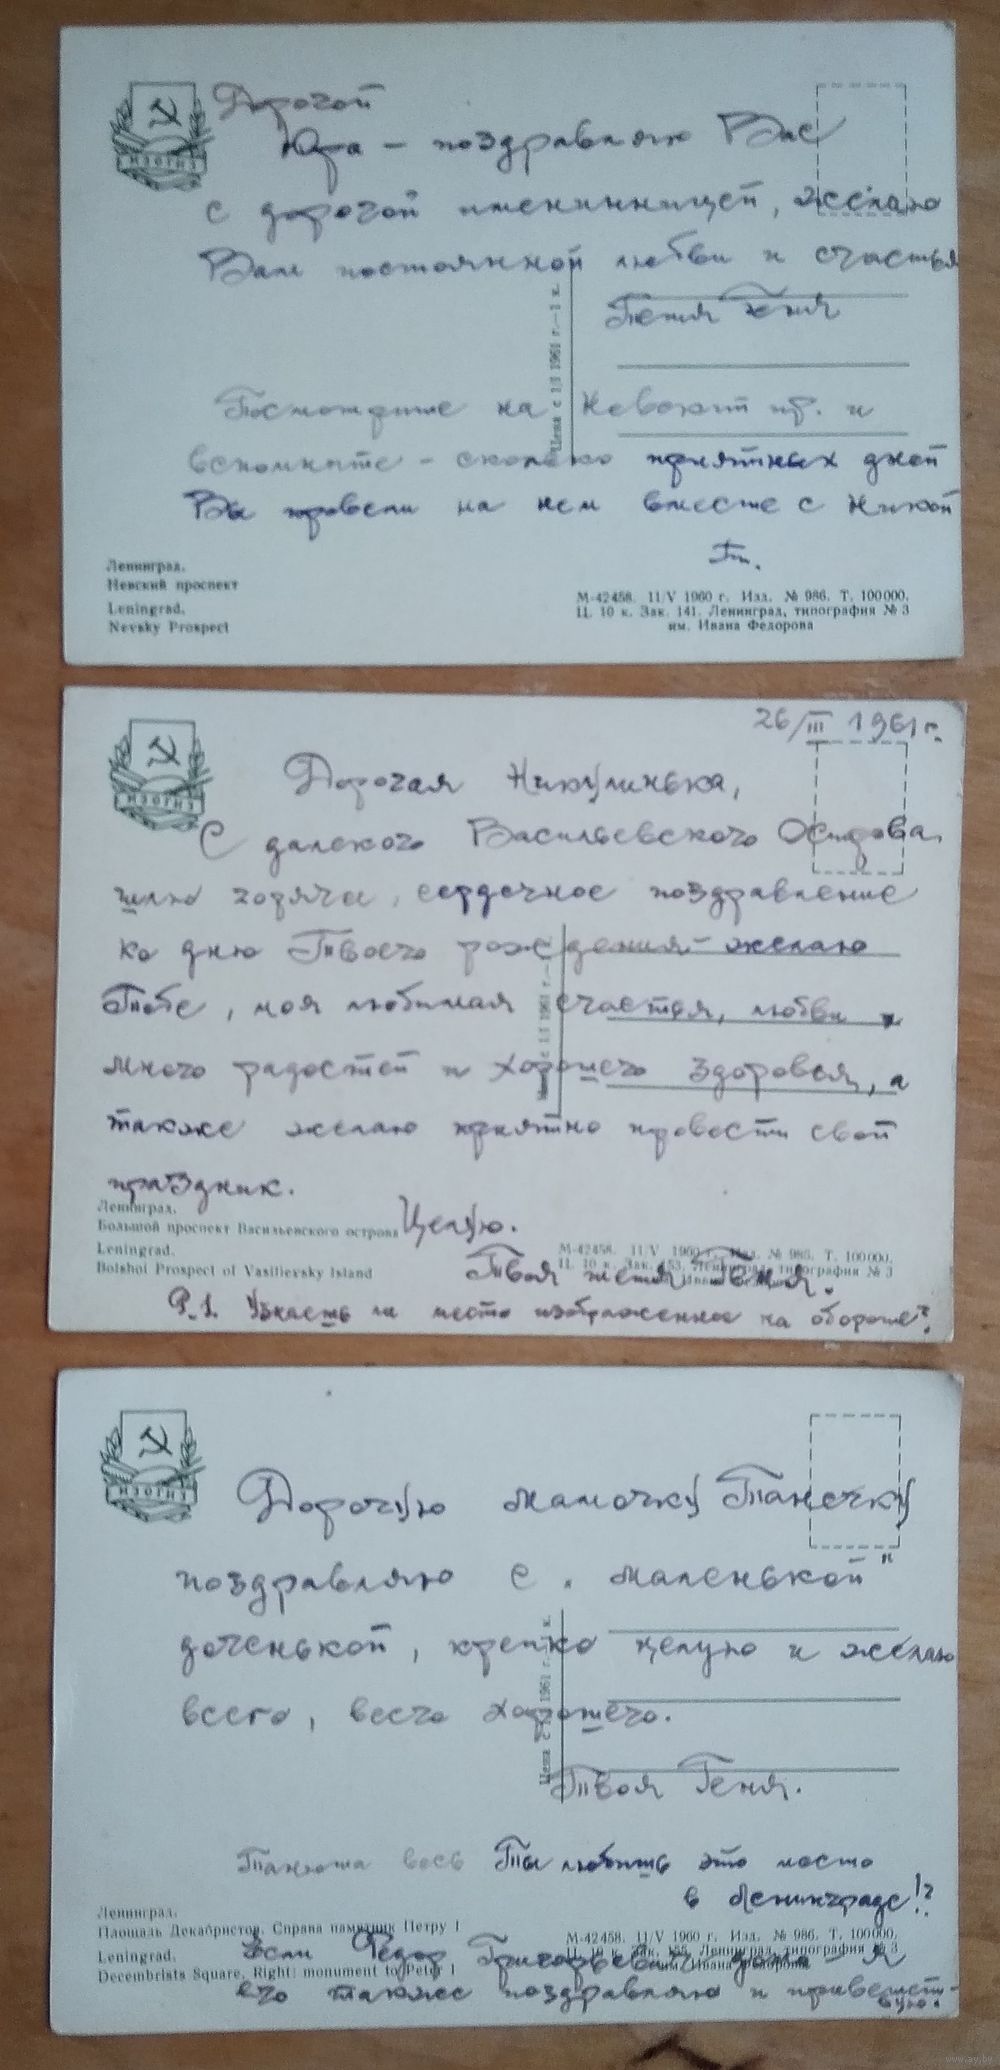 Дорогой
Юра - поздравляю Вас
с дорогой именинницей, желаю
Вам постоянной любви и счастья
Тетя Геня
Посмотрите на Невский пр. и
вспомните - сколько приятных дней
Вы провели на нем вместе с Никой
ИЗОГИЗ
Цена с 1/I 1961 г.—1 к.
Ленинград.
Невский проспект
Leningrad.
Nevsky Prospect
М-42458. 11/V 1960 г. Изд. № 986. Т. 100000.
Ц. 10 к. Зак. 141. Ленинград, типография № 3
им. Ивана Федорова
26/III 1961 г.
Дорогая Никулинька,
С далекого Васильевского Острова
шлю горячее, сердечное поздравление
ко дню Твоего рождения - желаю
Тебе, моя любимая счастья, любви,
много радостей и хорошего здоровья, а
также желаю приятно провести свой
праздник.
Целую.
Твоя тетя Геня.
P.S. Узнаешь ли место изображенное на обороте?
ИЗОГИЗ
с 1/I 1961 г.—
Ленинград.
Большой проспект Васильевского острова
Leningrad.
Bolshoi Prospect of Vasilievsky Island
М-42458. 11/V 1960 г. Изд. № 986. Т. 100000.
Ц. 10 к. Зак. 153. Ленинград, типография № 3
Дорогую мамочку Танечку
поздравляю с „маленькой"
доченькой, крепко целую и желаю
всего, всего хорошего.
Твоя Геня.
Танюша ведь Ты любишь это место
в Ленинграде!?
Если Федор Григорьевич дома - я
его также поздравляю и приветст-
вую.
ИЗОГИЗ
Цена с 1961 г.— к.
Ленинград.
Площадь Декабристов. Справа памятник Петру I
Leningrad.
Decembrists Square, Right: monument to Peter I
М-42458. 11/V 1960 г. Изд. № 986. Т. 100000.
Ленинград, типография № 3
www.ay.by